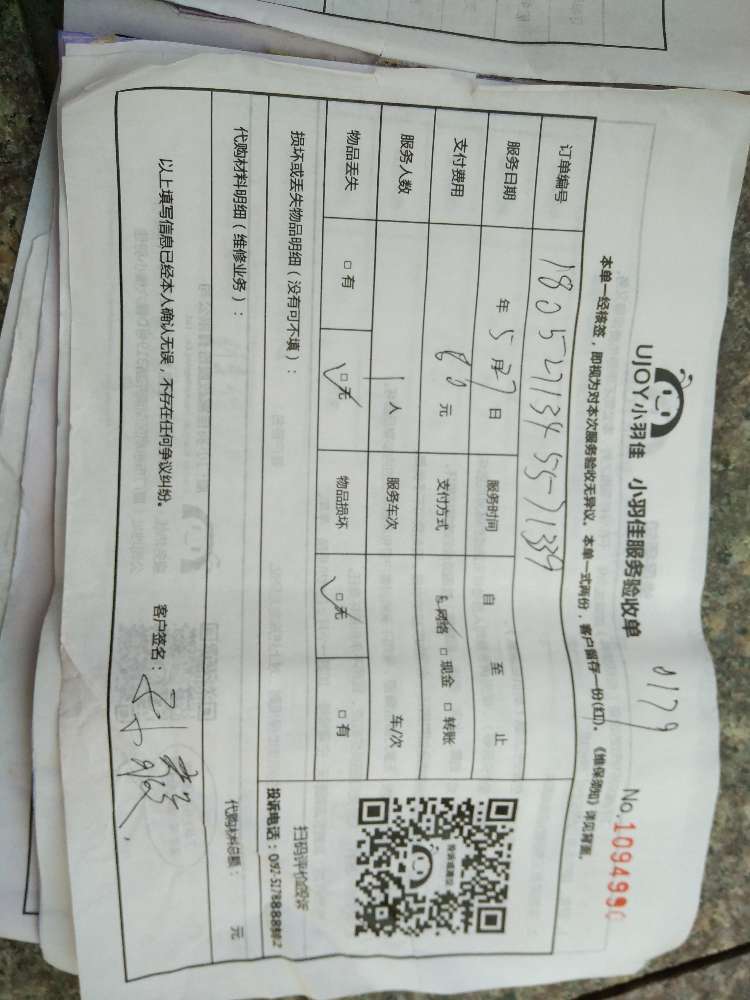 UJOY小羽佳 小羽佳服务验收单
0179
No.1094990
本单一经核签，即视为对本次服务验收无异议。本单一式两份，客户留存一份(红)。《维保须知》详见背面。
订单编号 180527134 5571339
服务日期 年 5 月 27 日 服务时间 自 至 止
支付费用 80 元 支付方式 网络 □ 现金 □ 转账
服务人数 1 人 服务车次 车/次
物品丢失 □ 有 □ 无 物品损坏 □ 无 □ 有
损坏或丢失物品明细（没有可不填）：
扫码评价投诉
代购材料明细（维修业务）：
代购材料总额： 元
以上填写信息已经本人确认无误，不存在任何争议纠纷。 客户签名：